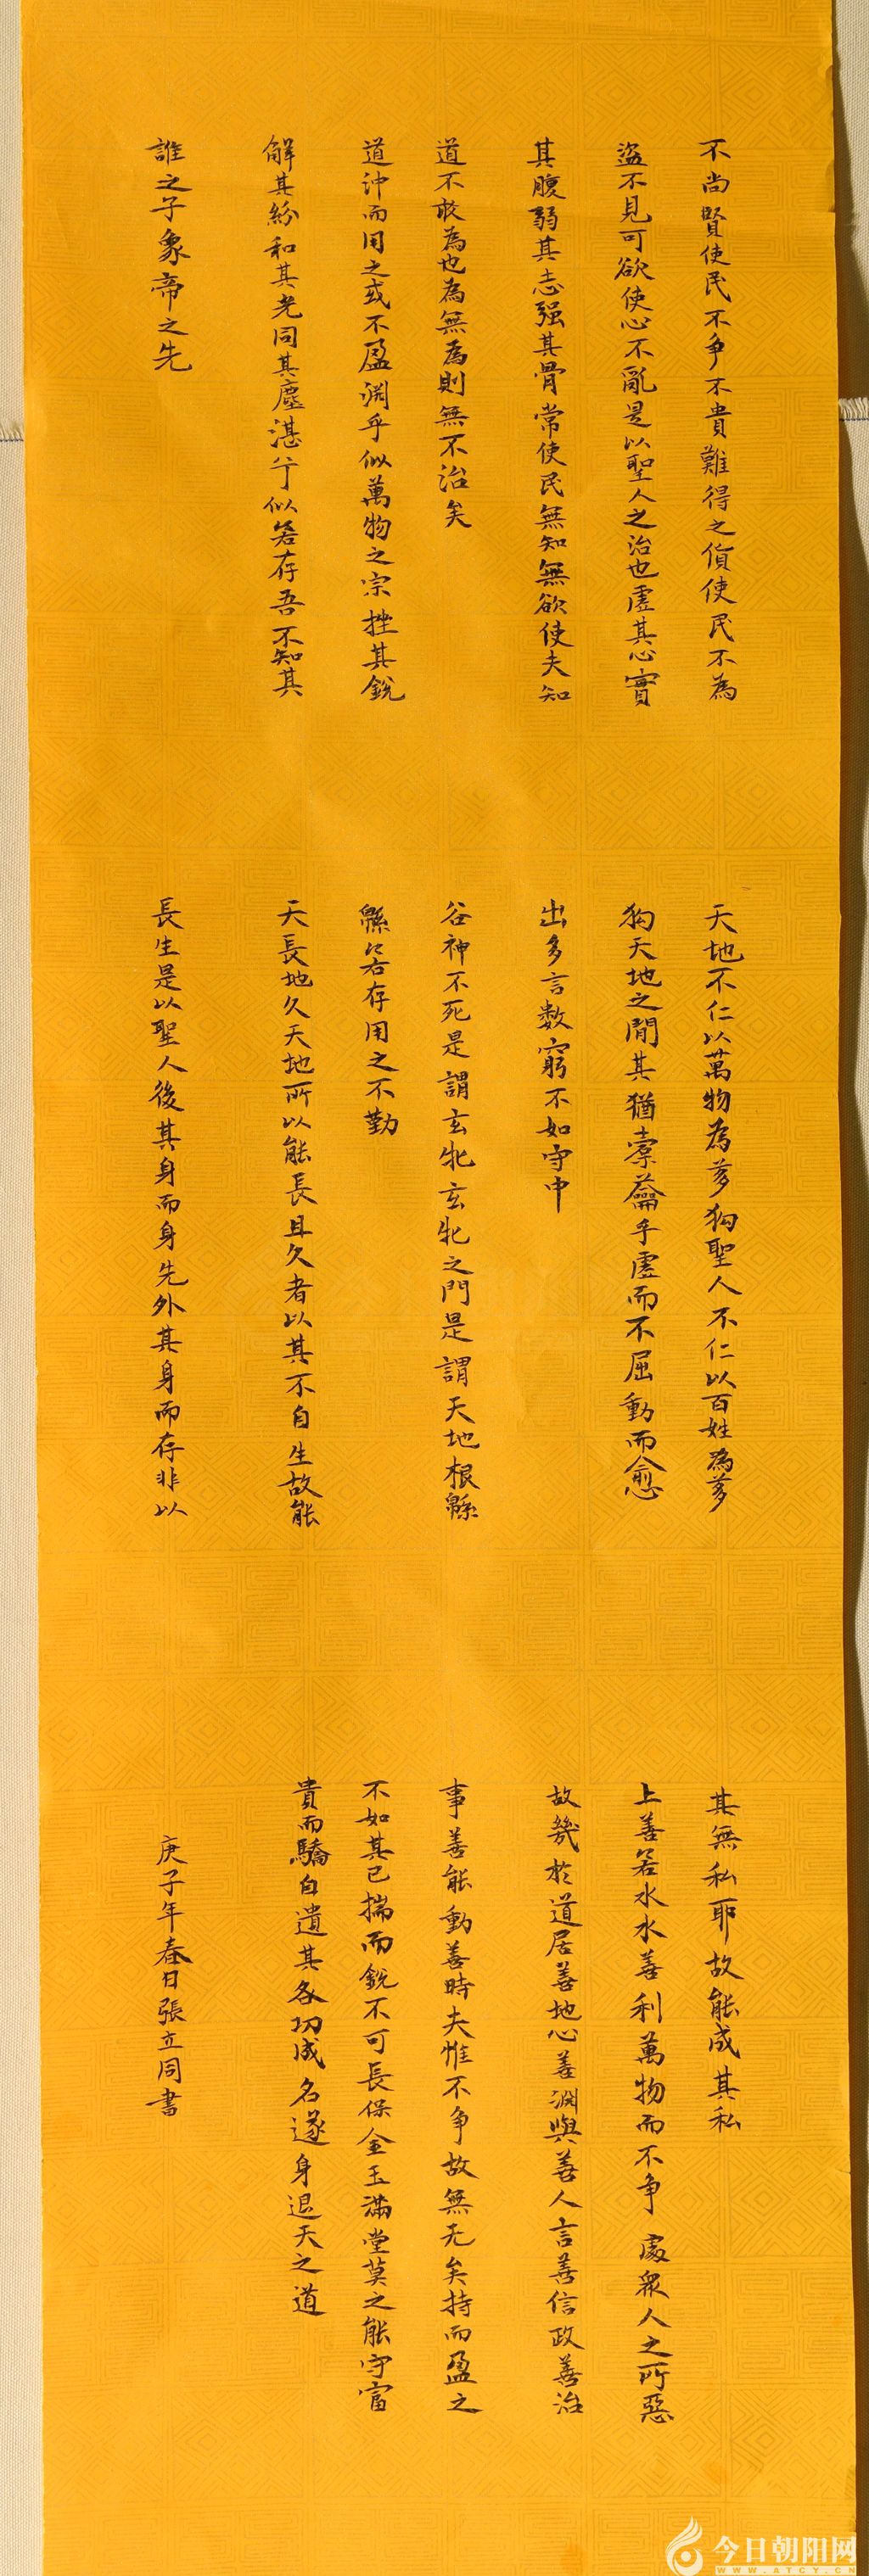 不尚賢使民不争不貴難得之貨使民不為
盗不見可欲使心不亂是以聖人之治也虛其心實
其腹弱其志强其骨常使民無知無欲使夫知
道不敢為也為無為則無不治矣
道沖而用之或不盈淵乎似萬物之宗挫其銳
解其紛和其光同其塵湛兮似若存吾不知其
誰之子象帝之先
天地不仁以萬物為芻狗聖人不仁以百姓為芻
狗天地之間其猶橐籥乎虛而不屈動而愈
出多言數窮不如守中
谷神不死是謂玄牝玄牝之門是謂天地根緜
緜若存用之不勤
天長地久天地所以能長且久者以其不自生故能
長生是以聖人後其身而身先外其身而存非以
其無私耶故能成其私
上善若水水善利萬物而不争處衆人之所惡
故幾於道居善地心善淵與善人言善信政善治
事善能動善時夫惟不争故無尤矣持而盈之
不如其已揣而銳不可長保金玉滿堂莫之能守富
貴而驕自遺其咎功成名遂身退天之道
庚子年春日張立同書
今日朝阳网
WWW.ATCY.CN